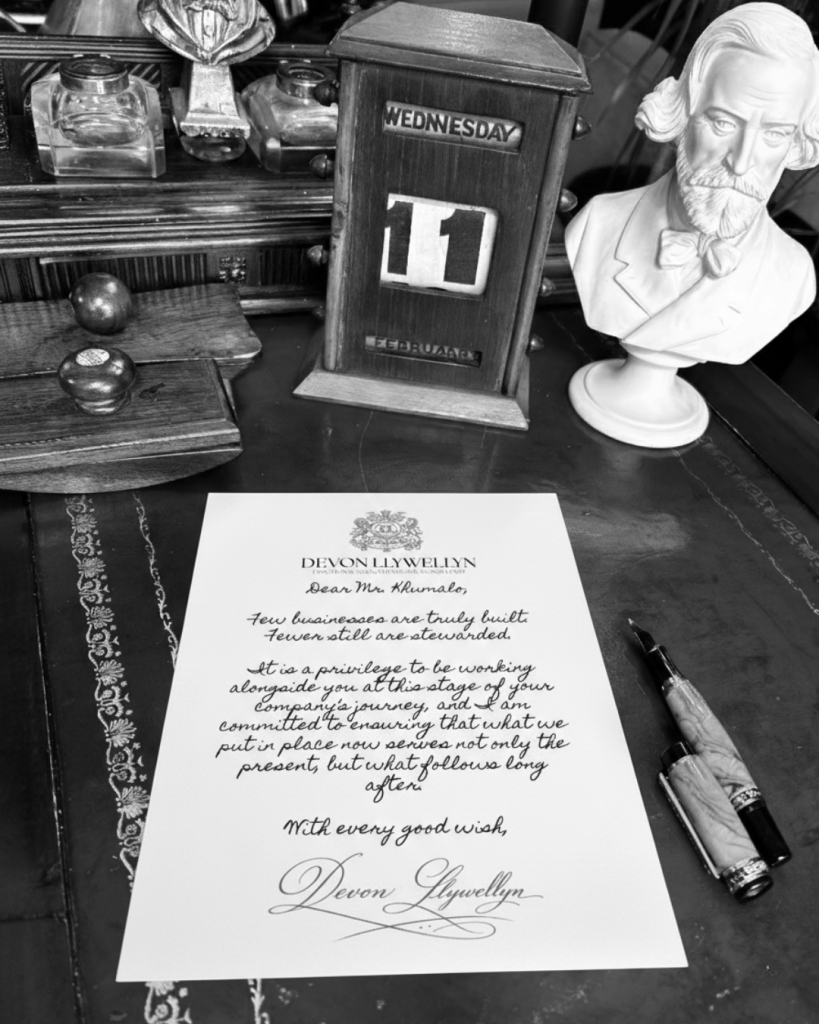 WEDNESDAY
11
FEBRUARY
DEVON LLYWELLYN
Dear Mr. Khumalo,
Few businesses are truly built.
Fewer still are stewarded.
It is a privilege to be working
alongside you at this stage of your
company's journey, and I am
committed to ensuring that what we
put in place now serves not only the
present, but what follows long
after.
With every good wish,
Devon Llywellyn